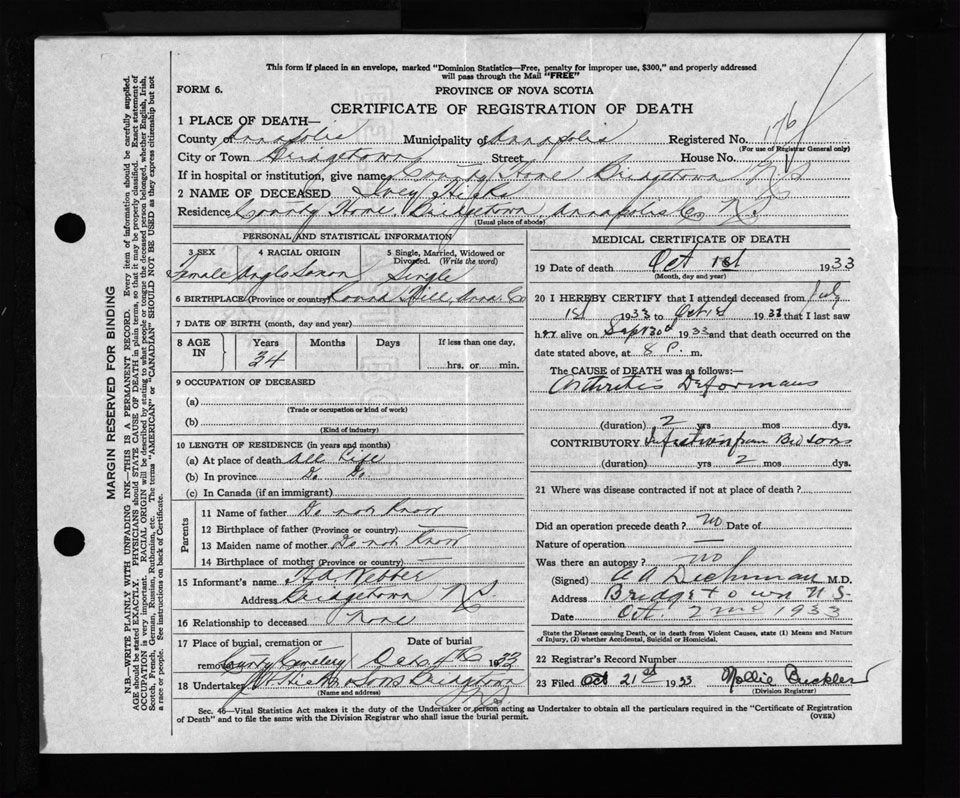 This form if placed in an envelope, marked "Dominion Statistics—Free, penalty for improper use, $300," and properly addressed
will pass through the Mail "FREE"
FORM 6.
PROVINCE OF NOVA SCOTIA
CERTIFICATE OF REGISTRATION OF DEATH
1 PLACE OF DEATH—
County of Annapolis Municipality of Annapolis Registered No. 176
(For use of Registrar General only)
City or Town Bridgetown Street House No.
If in hospital or institution, give name County Home Bridgetown N.S.
2 NAME OF DECEASED Ivey Hicks
Residence County Home Bridgetown Annapolis Co N.S.
(Usual place of abode)
PERSONAL AND STATISTICAL INFORMATION
3 SEX 4 RACIAL ORIGIN 5 Single, Married, Widowed or
Divorced. (Write the word)
Female Anglo Saxon Single
6 BIRTHPLACE (Province or country) Round Hill, Anna. Co
7 DATE OF BIRTH (month, day and year)
8 AGE IN Years Months Days If less than one day,
34 hrs. or min.
9 OCCUPATION OF DECEASED
(a)
(Trade or occupation or kind of work)
(b)
(Kind of industry)
10 LENGTH OF RESIDENCE (in years and months)
(a) At place of death All Life
(b) In province Do Do.
(c) In Canada (if an immigrant)
Parents
11 Name of father Do not Know
12 Birthplace of father (Province or country)
13 Maiden name of mother Do not Know
14 Birthplace of mother (Province or country)
15 Informant's name Webber
Address Bridgetown N.S.
16 Relationship to deceased None
17 Place of burial, cremation or Date of burial
removal County Cemetery 1933
18 Undertaker Hicks & Sons Bridgetown
(Name and address) N.S.
MEDICAL CERTIFICATE OF DEATH
19 Date of death Oct 1st 1933
(Month, day and year)
20 I HEREBY CERTIFY that I attended deceased from July
1st 1933 to Oct 1st 1933 that I last saw
her alive on Sept 30th 1933 and that death occurred on the
date stated above, at 8 P. m.
The CAUSE of DEATH was as follows:—
Arthritis Deformans
(duration) 2 yrs mos dys.
CONTRIBUTORY Infection from Bed Sores
(duration) yrs 2 mos dys.
21 Where was disease contracted if not at place of death?
Did an operation precede death? No Date of
Nature of operation —
Was there an autopsy? no
(Signed) A A Dechman M.D.
Address Bridgetown N.S.
Date Oct 2nd 1933
State the Disease causing Death, or in death from Violent Causes, state (1) Means and Nature
of Injury, (2) whether Accidental, Suicidal or Homicidal.
22 Registrar's Record Number
23 Filed Oct 21st 1933 Mollie Buckler
(Division Registrar)
Sec. 46—Vital Statistics Act makes it the duty of the Undertaker or person acting as Undertaker to obtain all the particulars required in the "Certificate of Registration
of Death" and to file the same with the Division Registrar who shall issue the burial permit.
(OVER)
MARGIN RESERVED FOR BINDING
N.B.—WRITE PLAINLY WITH UNFADING INK—THIS IS A PERMANENT RECORD. Every item of information should be carefully supplied.
AGE should be stated EXACTLY. PHYSICIANS should STATE CAUSE OF DEATH in plain terms, so that it may be properly classified. Exact statement of
OCCUPATION is very important. RACIAL ORIGIN will be described by stating to what people or tongue the deceased person belonged, whether English, Irish,
Scotch, French, German, Russian, Ruthenian, etc. The terms "AMERICAN" or "CANADIAN" SHOULD NOT BE USED as they express citizenship but not
a race or people. See instructions on back of Certificate.